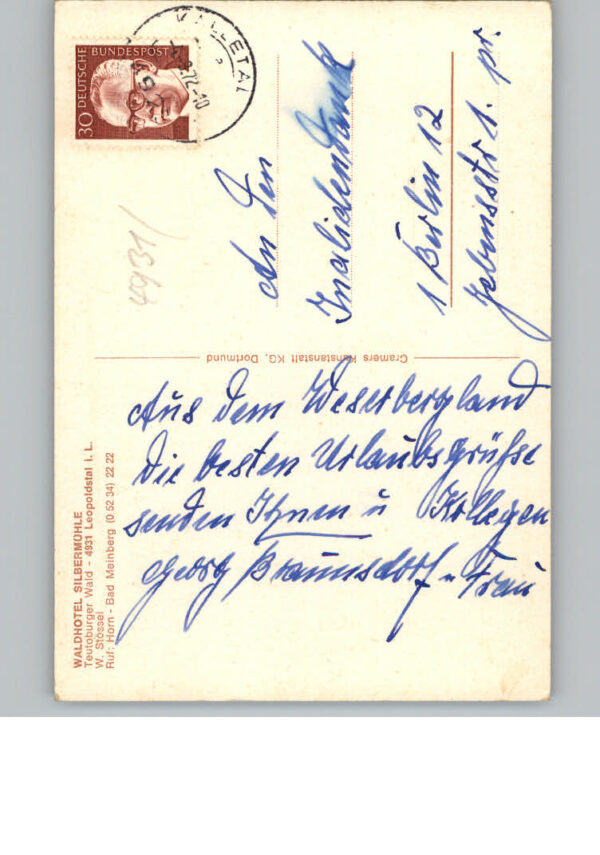 WALDHOTEL SILBERMÜHLE
Teutoburger Wald - 4931 Leopoldstal i. L.
W. Stössel
Ruf: Horn - Bad Meinberg (0 52 34) 22 22
Aus dem Weserbergland
die besten Urlaubsgrüße
senden Ihnen u Kollegen
Georg Braunsdorf u Frau
Cramers Kunstanstalt KG, Dortmund
4931/
30 DEUTSCHE BUNDESPOST
KALLETAL
An den
Invalidendank
1 Berlin 12
Jebensstr 1. pr.